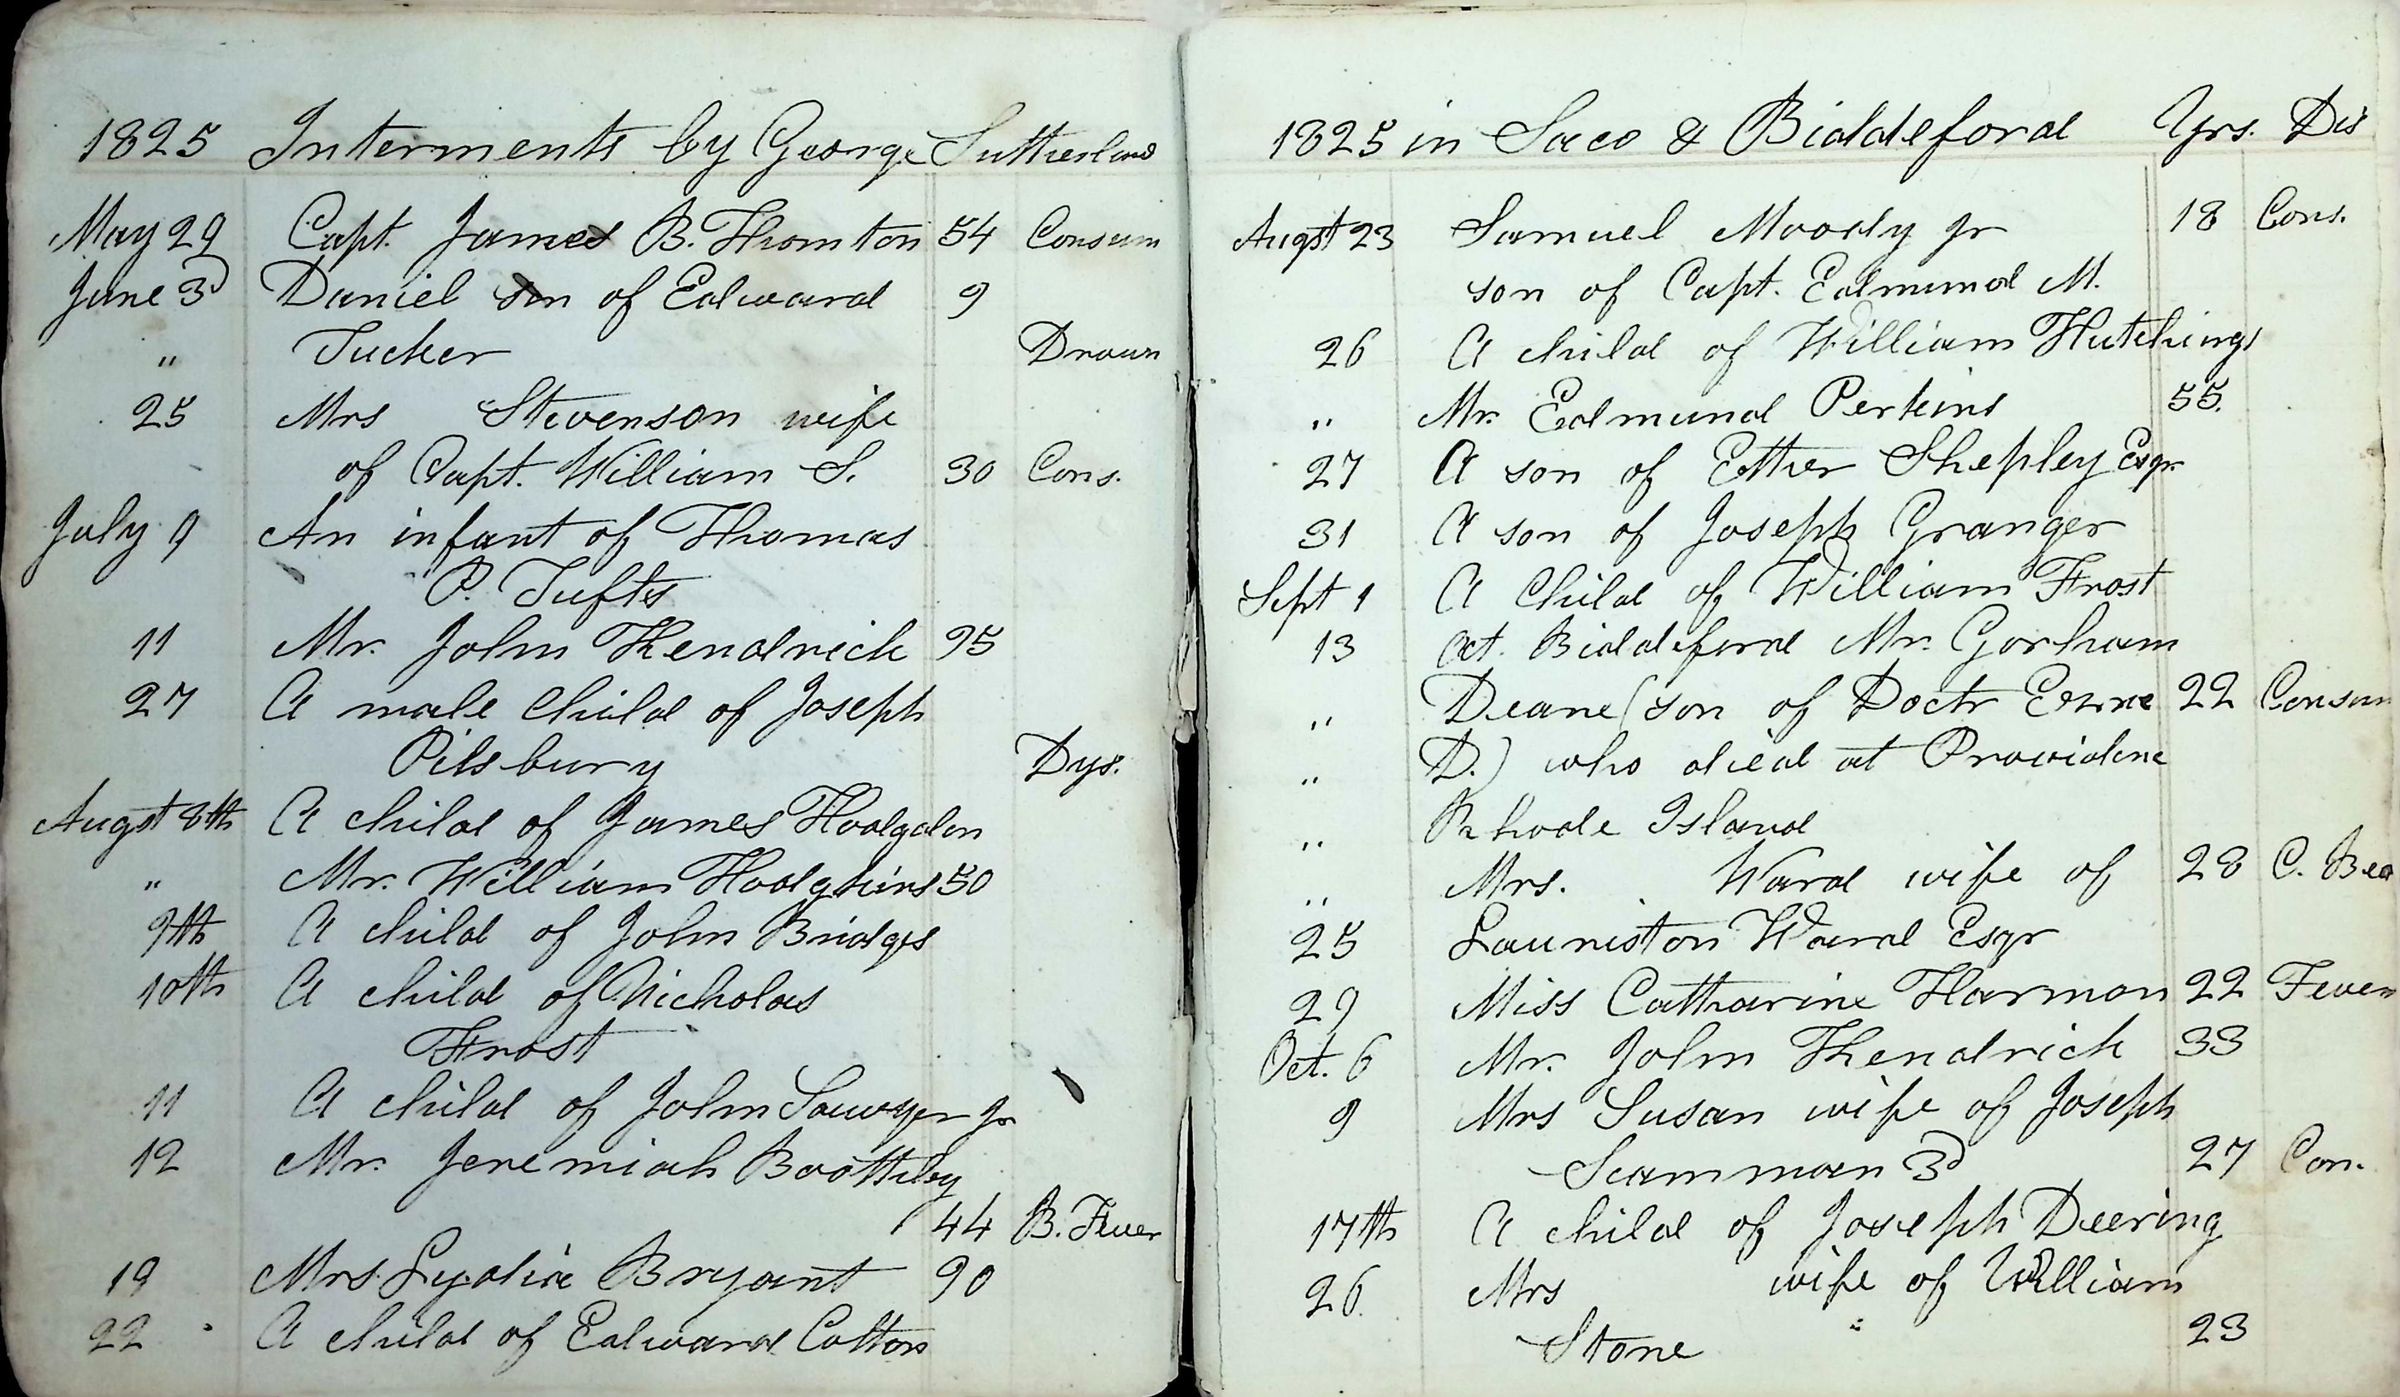 1825 Interments by George Sutherland
May 29 Capt. James B. Thornton 54 Consum
June 3d Daniel son of Edward 9
" Tucker Drown
25 Mrs Stevenson wife
of Capt. William S. 30 Cons.
July 9 An infant of Thomas
P. Tufts
11 Mr. John Kendrick 95
27 A male Child of Joseph
Pilsbury Dys.
Augst 8th A child of James Hodgdon
" Mr. William Hodgkins 50
9th A child of John Bridges
10th A child of Nicholas
Frost
11 A child of John Sawyer Jr
12 Mr. Jeremiah Boothby
44 B. Fever
19 Mrs. Lydia Bryant 90
22 A child of Edward Cotton
1825 in Saco & Biddeford Yrs. Dis
Augst 23 Samuel Moody Jr 18 Cons.
son of Capt. Edmund M.
26 A child of William Hutchings
" Mr. Edmund Perkins 55.
27 A son of Ether Shepley Esqr
31 A son of Joseph Granger
Sept 1 A Child of William Frost
13 At. Biddeford Mr. Gorham
" Deane (son of Doctr 22 Consum
" D.) who died at Providence
" Rhode Island
" Mrs. Ward wife of 28 C. Bed
25 Launiston Ward Esqr
29 Miss Catharine Harmon 22 Fever
Oct. 6 Mr. John Kendrick 33
9 Mrs Susan wife of Joseph
Scamman 3d 27 Con.
17th A child of Joseph Deering
26. Mrs wife of William
Stone " 23